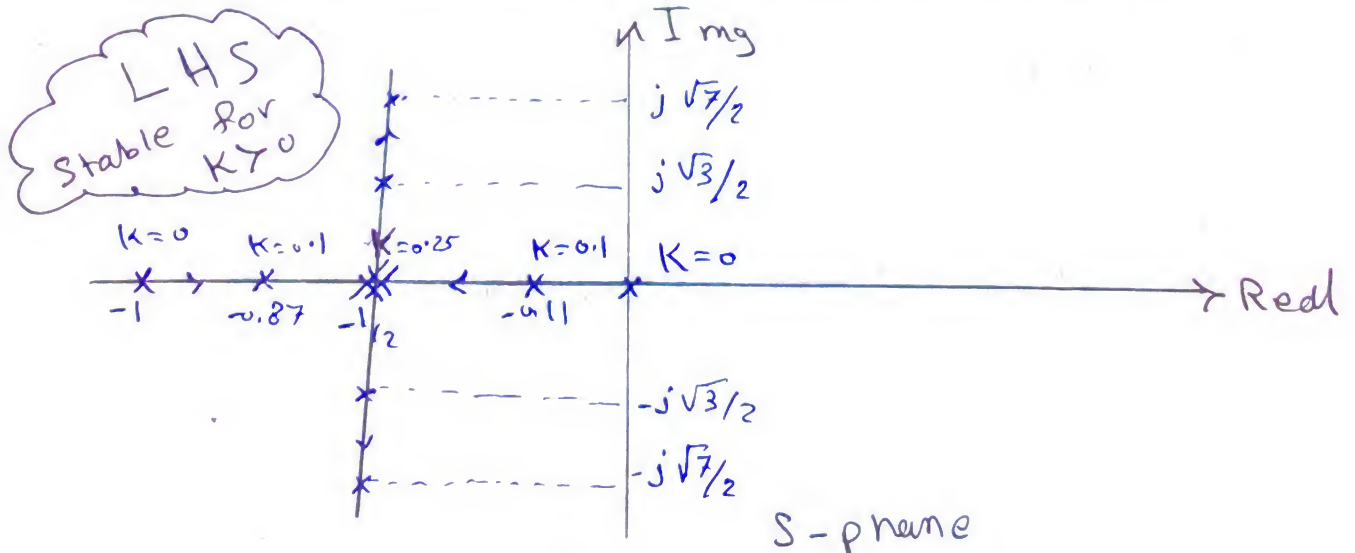 LHS
Stable for
K>0
Img
j√7/2
j√3/2
K=0 K=0.1 K=0.25 K=0.1 K=0
-1 -0.87 -1/2 -0.11
Real
-j√3/2
-j√7/2
S-plane